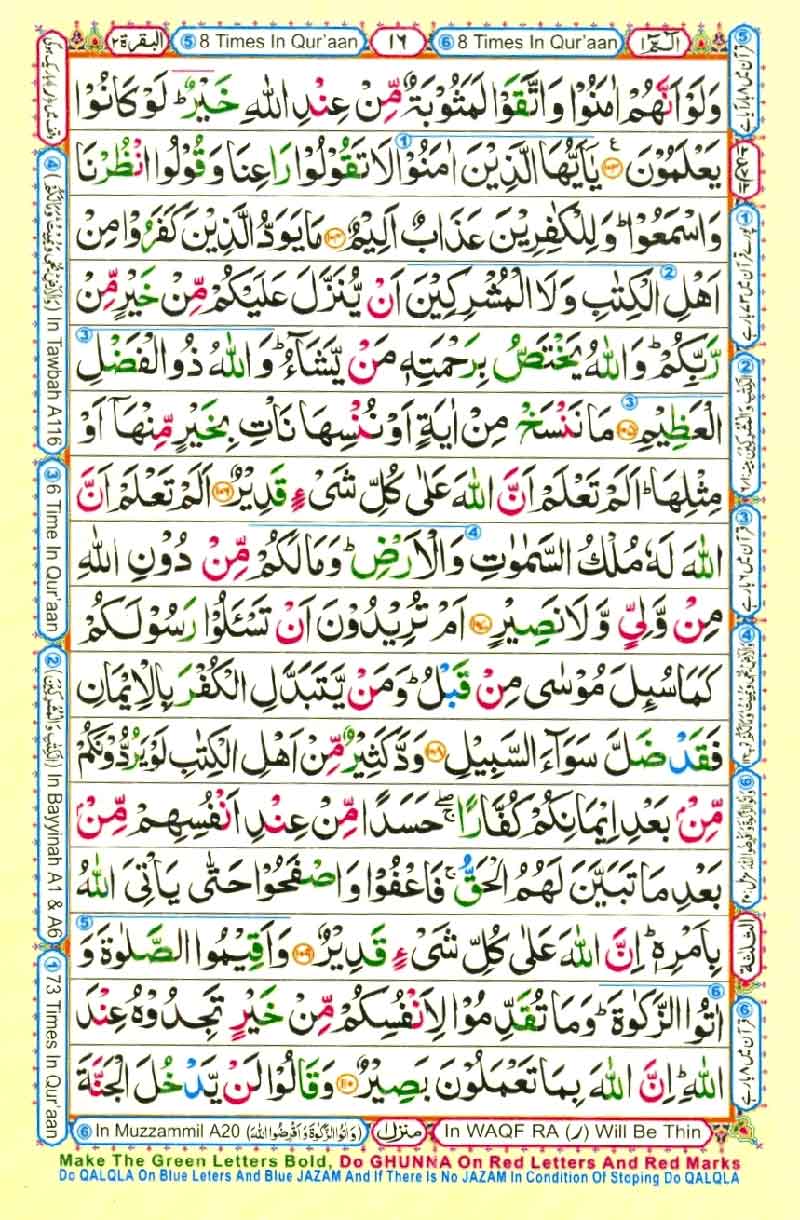 البقرة ٢
⑤ 8 Times In Qur'aan
١٦
⑥ 8 Times In Qur'aan
الٓمّٓ ١
وَلَوْ اَنَّهُمْ اٰمَنُوْا وَاتَّقَوْا لَمَثُوْبَةٌ مِّنْ عِنْدِ اللّٰهِ خَيْرٌ ؕ لَوْ كَانُوْا
يَعْلَمُوْنَ ۝۱۰۳ يٰۤاَيُّهَا الَّذِيْنَ اٰمَنُوْا لَا تَقُوْلُوْا رَاعِنَا وَقُوْلُوا انْظُرْنَا
وَاسْمَعُوْا ؕ وَلِلْكٰفِرِيْنَ عَذَابٌ اَلِيْمٌ ۝۱۰۴ مَا يَوَدُّ الَّذِيْنَ كَفَرُوْا مِنْ
اَهْلِ الْكِتٰبِ وَلَا الْمُشْرِكِيْنَ اَنْ يُّنَزَّلَ عَلَيْكُمْ مِّنْ خَيْرٍ مِّنْ
رَّبِّكُمْ ؕ وَاللّٰهُ يَخْتَصُّ بِرَحْمَتِهٖ مَنْ يَّشَآءُ ؕ وَاللّٰهُ ذُو الْفَضْلِ
الْعَظِيْمِ ۝۱۰۵ مَا نَنْسَخْ مِنْ اٰيَةٍ اَوْ نُنْسِهَا نَاْتِ بِخَيْرٍ مِّنْهَاۤ اَوْ
مِثْلِهَا ؕ اَلَمْ تَعْلَمْ اَنَّ اللّٰهَ عَلٰى كُلِّ شَىْءٍ قَدِيْرٌ ۝۱۰۶ اَلَمْ تَعْلَمْ اَنَّ
اللّٰهَ لَهٗ مُلْكُ السَّمٰوٰتِ وَالْاَرْضِ ؕ وَمَا لَكُمْ مِّنْ دُوْنِ اللّٰهِ
مِنْ وَّلِىٍّ وَّلَا نَصِيْرٍ ۝۱۰۷ اَمْ تُرِيْدُوْنَ اَنْ تَسْـَٔلُوْا رَسُوْلَكُمْ
كَمَا سُىِٕلَ مُوْسٰى مِنْ قَبْلُ ؕ وَمَنْ يَّتَبَدَّلِ الْكُفْرَ بِالْاِيْمَانِ
فَقَدْ ضَلَّ سَوَآءَ السَّبِيْلِ ۝۱۰۸ وَدَّ كَثِيْرٌ مِّنْ اَهْلِ الْكِتٰبِ لَوْ يَرُدُّوْنَكُمْ
مِّنْۢ بَعْدِ اِيْمَانِكُمْ كُفَّارًا ۖۚ حَسَدًا مِّنْ عِنْدِ اَنْفُسِهِمْ مِّنْۢ
بَعْدِ مَا تَبَيَّنَ لَهُمُ الْحَقُّ ۚ فَاعْفُوْا وَاصْفَحُوْا حَتّٰى يَاْتِىَ اللّٰهُ
بِاَمْرِهٖ ؕ اِنَّ اللّٰهَ عَلٰى كُلِّ شَىْءٍ قَدِيْرٌ ۝۱۰۹ وَاَقِيْمُوا الصَّلٰوةَ وَ
اٰتُوا الزَّكٰوةَ ؕ وَمَا تُقَدِّمُوْا لِاَنْفُسِكُمْ مِّنْ خَيْرٍ تَجِدُوْهُ عِنْدَ
اللّٰهِ ؕ اِنَّ اللّٰهَ بِمَا تَعْمَلُوْنَ بَصِيْرٌ ۝۱۱۰ وَقَالُوْا لَنْ يَّدْخُلَ الْجَنَّةَ
④ (وَالْاَرْضِ يُحْىٖ وَيُمِيْتُ وَمَا لَكُمْ) In Tawbah A 116
③ 6 Time In Qur'aan
② (الْكِتٰبِ وَالْمُشْرِكِيْنَ) In Bayyinah A1 & A6
① 73 Times In Qur'aan
⑥ In Muzzammil A20 (وَاٰتُوا الزَّكٰوةَ وَاَقْرِضُوا اللّٰهَ)
منزل ١
In WAQF RA (ر) Will Be Thin
Make The Green Letters Bold, Do GHUNNA On Red Letters And Red Marks
Do QALQLA On Blue Leters And Blue JAZAM And If There Is No JAZAM In Condition Of Stoping Do QALQLA